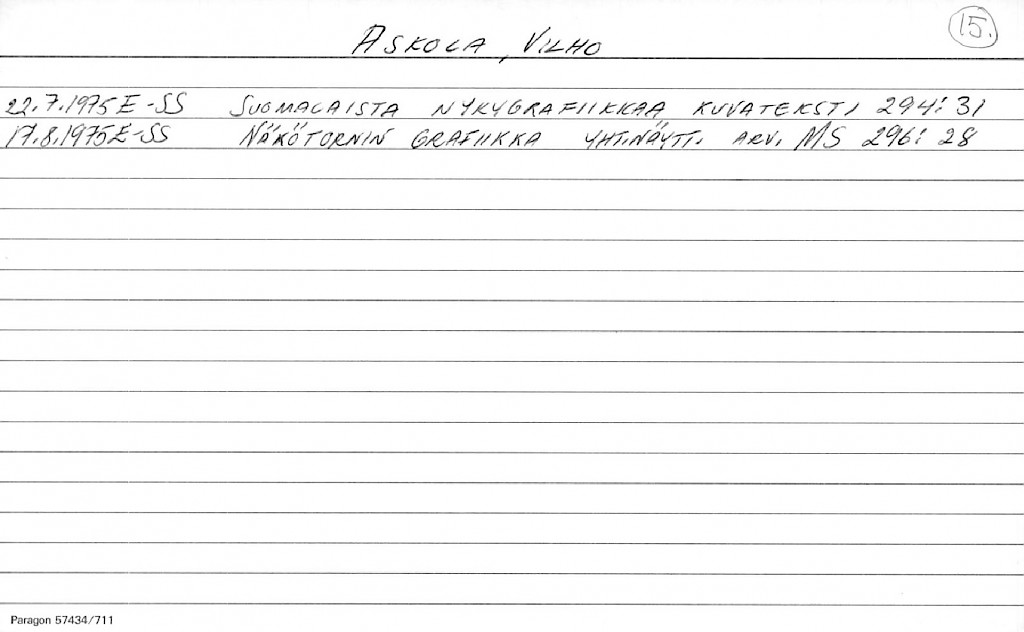 15.
ASKOLA, VILHO
22.7.1975 E-SS SUOMALAISTA NYKYGRAFIIKKAA, KUVATEKSTI 294:31
17.8.1975 E-SS NÄKÖTORNIN GRAFIIKKA YHT.NÄYTT. ARV. MS 296:28
Paragon 57434/711